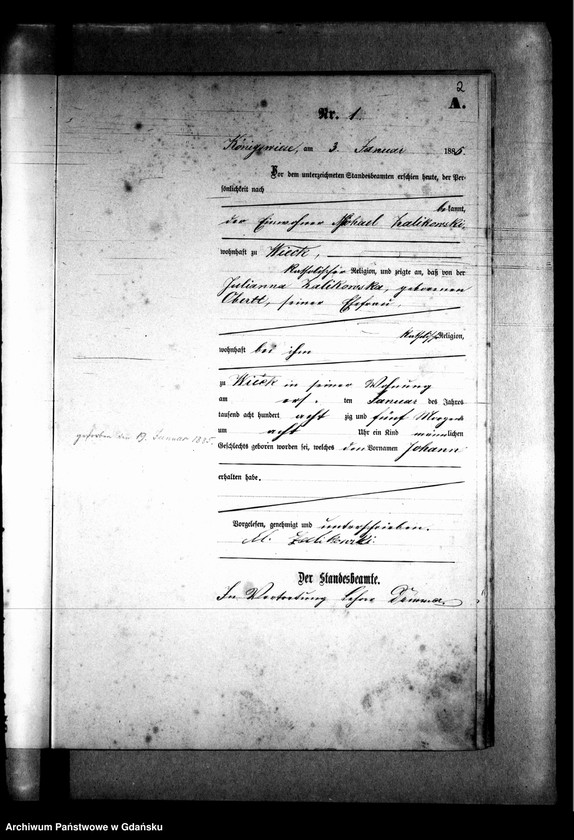 2
A.
Nr. 1
Königswiese, am 3. Januar 1885.
Vor dem unterzeichneten Standesbeamten erschien heute, der Per-
sönlichkeit nach
bekannt,
der Einwohner Michael Zalikowski,
wohnhaft zu Wieck,
katholischer Religion, und zeigte an, daß von der
Julianna Zalikowska, geborenen
Oberti, seiner Ehefrau
katholischer Religion,
wohnhaft bei ihm
zu Wieck in seiner Wohnung
am ersten Januar des Jahres
tausend acht hundert achtzig und fünf Morgens
um acht Uhr ein Kind männlichen
Geschlechts geboren worden sei, welches den Vornamen Johann
erhalten habe.
gestorben den 19. Januar 1885.
Vorgelesen, genehmigt und unterschrieben.
M. Zalikowski
Der Standesbeamte.
In Vertretung
Archiwum Państwowe w Gdańsku